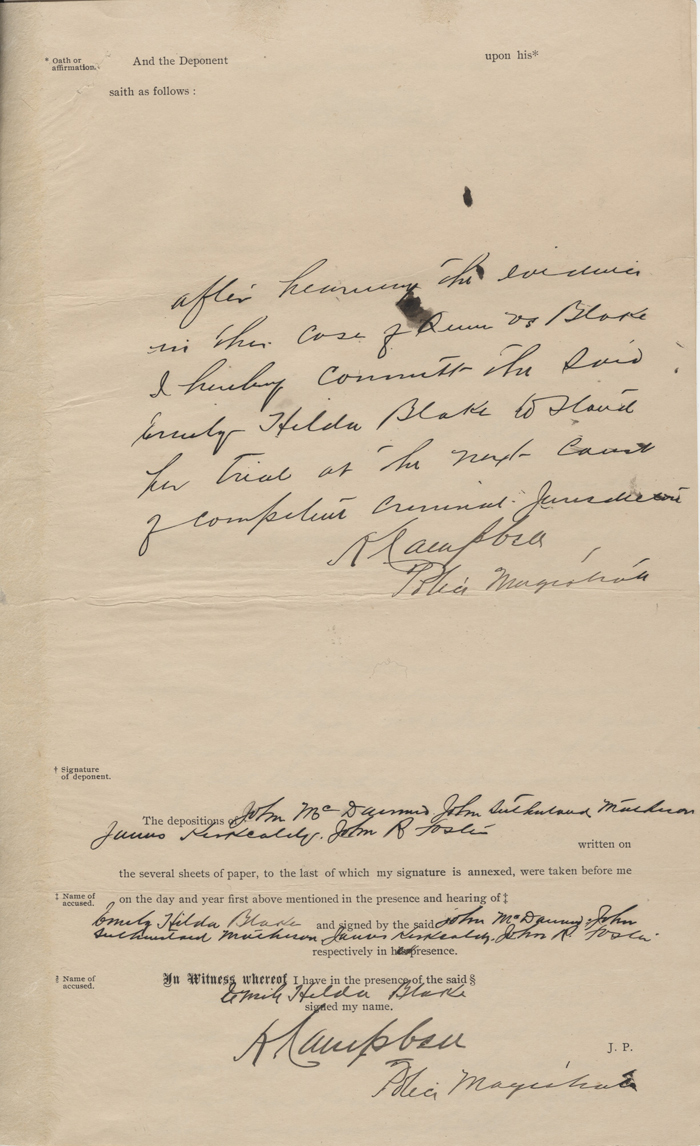 * Oath or
affirmation.
And the Deponent upon his*
saith as follows :
after hearing the evidence
in this case of Queen vs Blake
I hereby committ the said
Emily Hilda Blake to stand
her trial at the next Court
of competent criminal Jurisdiction
Campbell
Police Magistrate
† Signature
of deponent.
The depositions of John McDiarmid John Sutherland Matheson
James Kirkcaldy. John R Foster
written on
the several sheets of paper, to the last of which my signature is annexed, were taken before me
‡ Name of
accused.
on the day and year first above mentioned in the presence and hearing of ‡
Emily Hilda Blake and signed by the said John McDiarmid, John
Sutherland Matheson James Kirkcaldy. John R. Foster.
respectively in her presence.
Name of
accused.
In Witness whereof I have in the presence of the said §
Emily Hilda Blake
signed my name.
Campbell
J. P.
Police Magistrate